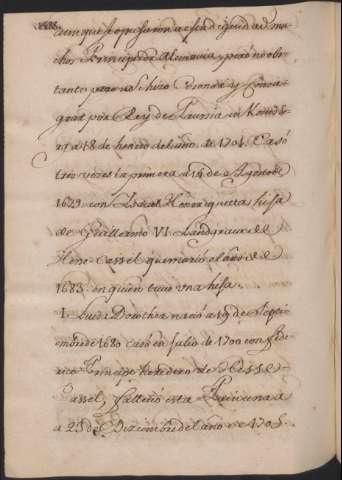 aunque se opusieron a esta dignidad mu
chos Principes de Alemania, pero no obs
tante pero se hizo Coronar y Consa
grar por Rey de Prussia en Konisbe
a 18 de henero del año de 1701. Casó
tres vezes la primera a 19 de Agosto de
1679 con Isabel Henrriquetta hija
de Guillermo VI Landgrave de
Hesse-Cassel que murio el año de
1683. en quien tuvo una hija.
1. Luisa Dorothea nació a 19 de Septi
embre 1680 casó en julio de 1700 con Fede
rico Principe heredero de Hesse-
Cassel, falleció esta Princesa
a 23 de Diziembre del año de 1705.